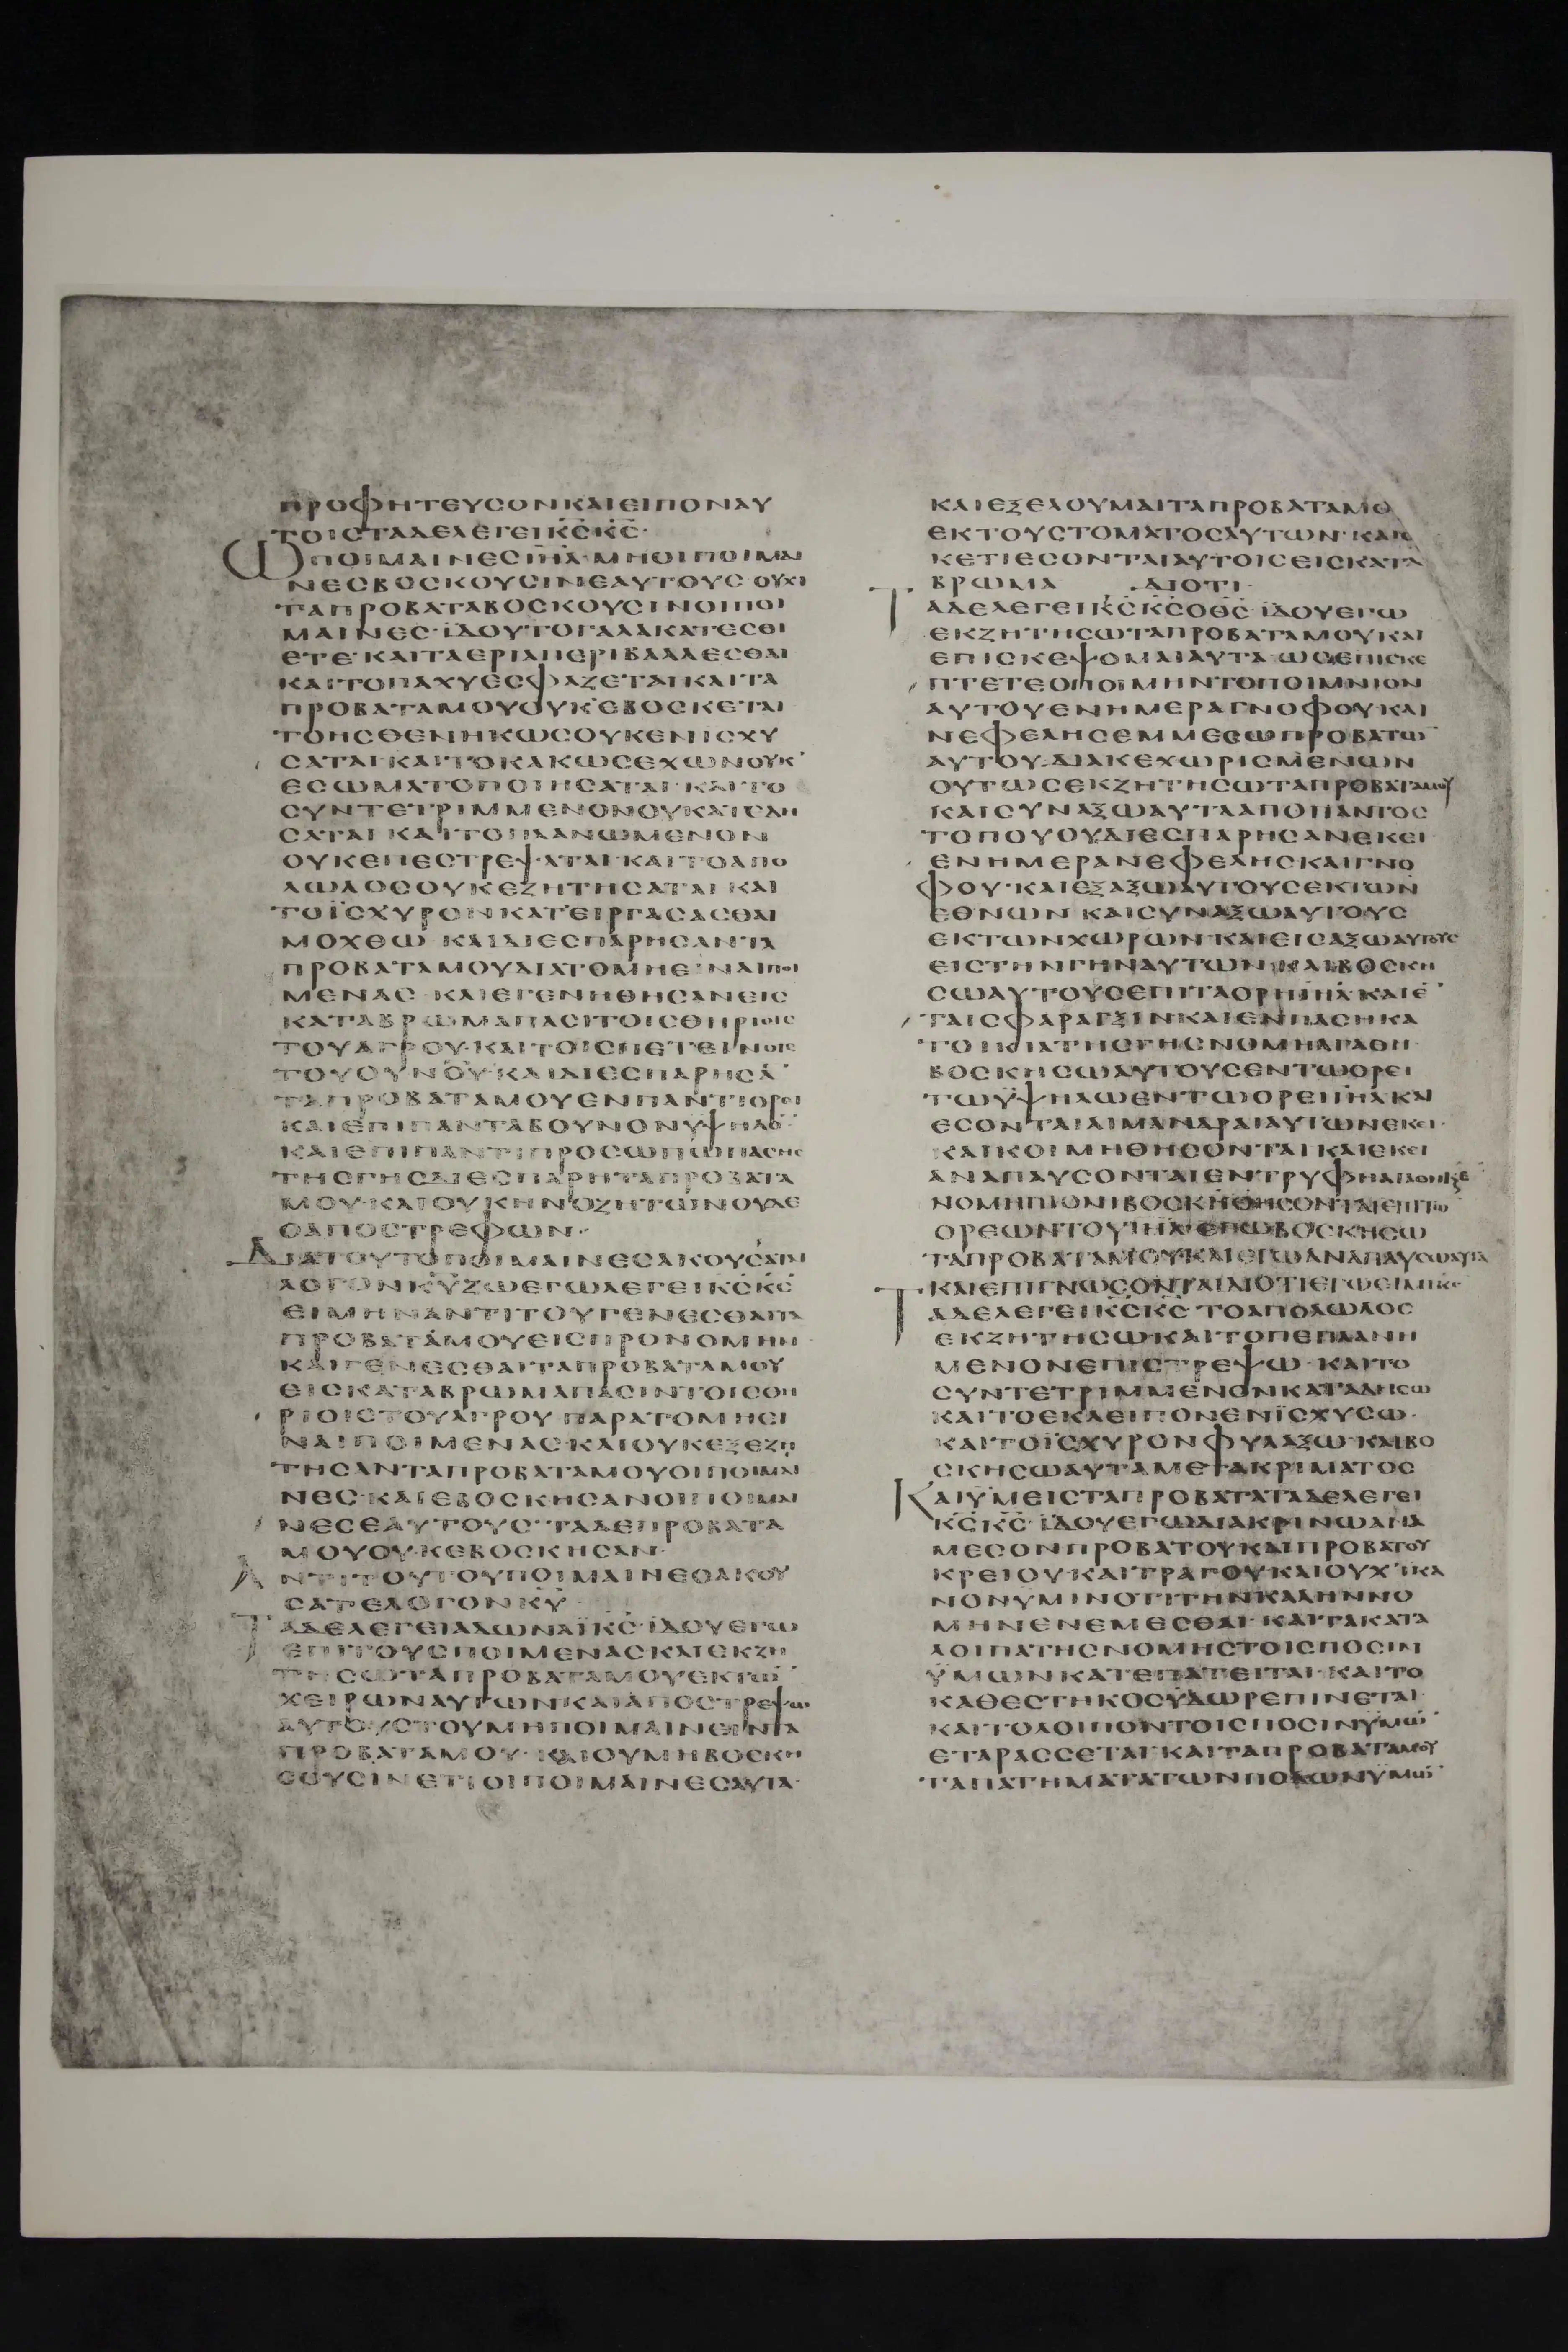 ΠΡΟΦΗΤΕΥΣΟΝΚΑΙΕΙΠΟΝΑΥ
ΤΟΙΣΤΑΔΕΛΕΓΕΙΚ̅Σ̅Κ̅Σ̅·
ΩΠΟΙΜΑΙΝΕΣΙΗ̅Λ̅·ΜΗΟΙΠΟΙΜΑΙ
ΝΕΣΒΟΣΚΟΥΣΙΝΕΑΥΤΟΥΣ ΟΥΧΙ
ΤΑΠΡΟΒΑΤΑΒΟΣΚΟΥΣΙΝΟΙΠΟΙ
ΜΑΙΝΕΣ·ΪΔΟΥΤΟΓΑΛΑΚΑΤΕΣΘΙ
ΕΤΕ·ΚΑΙΤΑΕΡΙΑΠΕΡΙΒΑΛΛΕΣΘΑΙ
ΚΑΙΤΟΠΑΧΥΕΣΦΑΖΕΤΑΙΚΑΙΤΑ
ΠΡΟΒΑΤΑΜΟΥΟΥΚΕΒΟΣΚΕΤΑΙ
ΤΟΗΣΘΕΝΗΚΩΣΟΥΚΕΝΙΣΧΥ
ΣΑΤΑΙ·ΚΑΙΤΟΚΑΚΩΣΕΧΩΝΟΥΚ
ΕΣΩΜΑΤΟΠΟΙΗΣΑΤΑΙ·ΚΑΙΤΟ
ΣΥΝΤΕΤΡΙΜΜΕΝΟΝΟΥΚΑΤΕΔΗ
ΣΑΤΑΙ ΚΑΙΤΟΠΛΑΝΩΜΕΝΟΝ
ΟΥΚΕΠΕΣΤΡΕΨΑΤΑΙ·ΚΑΙΤΟΑΠΟ
ΛΩΛΟΣΟΥΚΕΖΗΤΗΣΑΤΑΙ ΚΑΙ
ΤΟΪΣΧΥΡΟΝΚΑΤΕΙΡΓΑΣΑΣΘΑΙ
ΜΟΧΘΩ·ΚΑΙΔΙΕΣΠΑΡΗΣΑΝΤΑ
ΠΡΟΒΑΤΑΜΟΥΔΙΑΤΟΜΗΕΙΝΑΙΠΟΙ
ΜΕΝΑΣ·ΚΑΙΕΓΕΝΗΘΗΣΑΝΕΙΣ
ΚΑΤΑΒΡΩΜΑΠΑΣΙΤΟΙΣΘΗΡΙΟΙΣ
ΤΟΥΑΓΡΟΥ·ΚΑΙΤΟΙΣΠΕΤΕΙΝΟΙΣ
ΤΟΥΟΥΝΟΥ ΚΑΙΔΙΕΣΠΑΡΗΣΑ̅
ΤΑΠΡΟΒΑΤΑΜΟΥΕΝΠΑΝΤΙΟΡΕΙ
ΚΑΙΕΠΙΠΑΝΤΑΒΟΥΝΟΝΥΨΗΛΟ̅
ΚΑΙΕΠΙΠΑΝΤΙΠΡΟΣΩΠΩΠΑΣΗΣ
ΤΗΣΓΗΣΔΙΕΣΠΑΡΗΤΑΠΡΟΒΑΤΑ
ΜΟΥ·ΚΑΙΟΥΚΗΝΟΖΗΤΩΝΟΥΔΕ
ΟΑΠΟΣΤΡΕΦΩΝ·
ΔΙΑΤΟΥΤΟΠΟΙΜΑΙΝΕΣΑΚΟΥΣΑΤΑΙ
ΛΟΓΟΝΚ̅Υ̅ΖΩΕΓΩΛΕΓΕΙΚ̅Σ̅Κ̅Σ̅
ΕΙΜΗΝΑΝΤΙΤΟΥΓΕΝΕΣΘΑΙΤΑ
ΠΡΟΒΑΤΑΜΟΥΕΙΣΠΡΟΝΟΜΗΝ
ΚΑΙΓΕΝΕΣΘΑΙΤΑΠΡΟΒΑΤΑΜΟΥ
ΕΙΣΚΑΤΑΒΡΩΜΑΠΑΣΙΝΤΟΙΣΘΗ
ΡΙΟΙΣΤΟΥΑΓΡΟΥ ΠΑΡΑΤΟΜΗΕΙ
ΝΑΙΠΟΙΜΕΝΑΣ·ΚΑΙΟΥΚΕΞΕΖΗ
ΤΗΣΑΝΤΑΠΡΟΒΑΤΑΜΟΥΟΙΠΟΙΜΑΙ
ΝΕΣ·ΚΑΙΕΒΟΣΚΗΣΑΝΟΙΠΟΙΜΑΙ
ΝΕΣΕΑΥΤΟΥΣ·ΤΑΔΕΠΡΟΒΑΤΑ
ΜΟΥΟΥΚΕΒΟΣΚΗΣΑΝ·
ΑΝΤΙΤΟΥΤΟΥΠΟΙΜΑΙΝΕΣΑΚΟΥ
ΣΑΤΕΛΟΓΟΝΚ̅Υ̅
ΤΑΔΕΛΕΓΕΙΑΔΩΝΑΪΚ̅Σ̅·ΪΔΟΥΕΓΩ
ΕΠΙΤΟΥΣΠΟΙΜΕΝΑΣΚΑΙΕΚΖΗ
ΤΗΣΩΤΑΠΡΟΒΑΤΑΜΟΥΕΚΤΩ̅
ΧΕΙΡΩΝΑΥΤΩΝΚΑΙΑΠΟΣΤΡΕΨΩ
ΑΥΤΟΥΣΤΟΥΜΗΠΟΙΜΑΙΝΕΙΝΤΑ
ΠΡΟΒΑΤΑΜΟΥ·ΚΑΙΟΥΜΗΒΟΣΚΗ
ΣΟΥΣΙΝΕΤΙΟΙΠΟΙΜΑΙΝΕΣΑΥΤΑ·
ΚΑΙΕΞΕΛΟΥΜΑΙΤΑΠΡΟΒΑΤΑΜΟ
ΕΚΤΟΥΣΤΟΜΑΤΟΣΑΥΤΩΝ·ΚΑΙ
ΚΕΤΙΕΣΟΝΤΑΙΑΥΤΟΙΣΕΙΣΚΑΤΑ
ΒΡΩΜΑ ΔΙΟΤΙ·
ΤΑΔΕΛΕΓΕΙΚ̅Σ̅Κ̅Σ̅ΟΘ̅Σ̅·ΪΔΟΥΕΓΩ
ΕΚΖΗΤΗΣΩΤΑΠΡΟΒΑΤΑΜΟΥΚΑΙ
ΕΠΙΣΚΕΨΟΜΑΙΑΥΤΑ·ΩΣΕΠΙΣΚΕ
ΠΤΕΤΕΟΠΟΙΜΗΝΤΟΠΟΙΜΝΙΟΝ
ΑΥΤΟΥΕΝΗΜΕΡΑΓΝΟΦΟΥΚΑΙ
ΝΕΦΕΛΗΣΕΜΜΕΣΩΠΡΟΒΑΤΩ̅
ΑΥΤΟΥ·ΔΙΑΚΕΧΩΡΙΣΜΕΝΩΝ
ΟΥΤΩΣΕΚΖΗΤΗΣΩΤΑΠΡΟΒΑΤΑΜΟΥ
ΚΑΙΣΥΝΑΞΩΑΥΤΑΑΠΟΠΑΝΤΟΣ
ΤΟΠΟΥΟΥΔΙΕΣΠΑΡΗΣΑΝΕΚΕΙ
ΕΝΗΜΕΡΑΝΕΦΕΛΗΣ·ΚΑΙΓΝΟ
ΦΟΥ·ΚΑΙΕΞΑΞΩΑΥΤΟΥΣΕΚΤΩΝ
ΕΘΝΩΝ ΚΑΙΣΥΝΑΞΩΑΥΤΟΥΣ
ΕΚΤΩΝΧΩΡΩΝ·ΚΑΙΕΙΣΑΞΩΑΥΤΟΥΣ
ΕΙΣΤΗΝΓΗΝΑΥΤΩΝ·ΚΑΙΒΟΣΚΗ
ΣΩΑΥΤΟΥΣΕΠΙΤΑΟΡΗΙΗ̅Λ̅·ΚΑΙΕ̅
ΤΑΙΣΦΑΡΑΓΞΙΝΚΑΙΕΝΠΑΣΗΚΑ
ΤΟΙΚΙΑΤΗΣΓΗΣΝΟΜΗΑΓΑΘΗ·
ΒΟΣΚΗΣΩΑΥΤΟΥΣΕΝΤΩΟΡΕΙ
ΤΩΫΨΗΛΩΕΝΤΩΟΡΕΙΙΗ̅Λ̅·ΚΑΙ
ΕΣΟΝΤΑΙΑΙΜΑΝΔΡΑΙΑΥΤΩΝΕΚΕΙ·
ΚΑΙΚΟΙΜΗΘΗΣΟΝΤΑΙΚΑΙΕΚΕΙ
ΑΝΑΠΑΥΣΟΝΤΑΙΕΝΤΡΥΦΗ
ΝΟΜΗΠΙΟΝΙΒΟΣΚΗΘΗΣΟΝΤΑΙΕΠΙΤΩ̅
ΟΡΕΩΝΤΟΥΙΗ̅Λ̅·ΕΓΩΒΟΣΚΗΣΩ
ΤΑΠΡΟΒΑΤΑΜΟΥ·ΚΑΙΕΓΩΑΝΑΠΑΥΣΩΑΥΤΑ
ΚΑΙΕΠΙΓΝΩΣΟΝΤΑΙΔΙΟΤΙΕΓΩΕΙΜΙΚ̅Σ̅
ΤΑΔΕΛΕΓΕΙΚ̅Σ̅Κ̅Σ̅·ΤΟΑΠΟΛΩΛΟΣ
ΕΚΖΗΤΗΣΩΚΑΙΤΟΠΕΠΛΑΝΗ
ΜΕΝΟΝΕΠΙΣΤΡΕΨΩ·ΚΑΙΤΟ
ΣΥΝΤΕΤΡΙΜΜΕΝΟΝΚΑΤΑΔΗΣΩ
ΚΑΙΤΟΕΚΛΕΙΠΟΝΕΝΪΣΧΥΣΩ·
ΚΑΙΤΟΪΣΧΥΡΟΝΦΥΛΑΞΩ·ΚΑΙΒΟ
ΣΚΗΣΩΑΥΤΑΜΕΤΑΚΡΙΜΑΤΟΣ
ΚΑΙΫΜΕΙΣΤΑΠΡΟΒΑΤΑΤΑΔΕΛΕΓΕΙ
Κ̅Σ̅Κ̅Σ̅·ΪΔΟΥΕΓΩΔΙΑΚΡΙΝΩΑΝΑ
ΜΕΣΟΝΠΡΟΒΑΤΟΥΚΑΙΠΡΟΒΑΤΟΥ
ΚΡΕΙΟΥ·ΚΑΙΤΡΑΓΟΥΚΑΙΟΥΧΪΚΑ
ΝΟΝΥΜΙΝΟΤΙΤΗΝΚΑΛΗΝΝΟ
ΜΗΝΕΝΕΜΕΣΘΑΙ·ΚΑΙΤΑΚΑΤΑ
ΛΟΙΠΑΤΗΣΝΟΜΗΣΤΟΙΣΠΟΣΙΝ
ΫΜΩΝΚΑΤΕΠΑΤΕΙΤΑΙ·ΚΑΙΤΟ
ΚΑΘΕΣΤΗΚΟΣΫΔΩΡΕΠΙΝΕΤΑΙ·
ΚΑΙΤΟΛΟΙΠΟΝΤΟΙΣΠΟΣΙΝΫΜΩ̅
ΕΤΑΡΑΣΣΕΤΑΙ·ΚΑΙΤΑΠΡΟΒΑΤΑΜΟΥ
ΤΑΠΑΤΗΜΑΤΑΤΩΝΠΟΔΩΝΫΜΩ̅